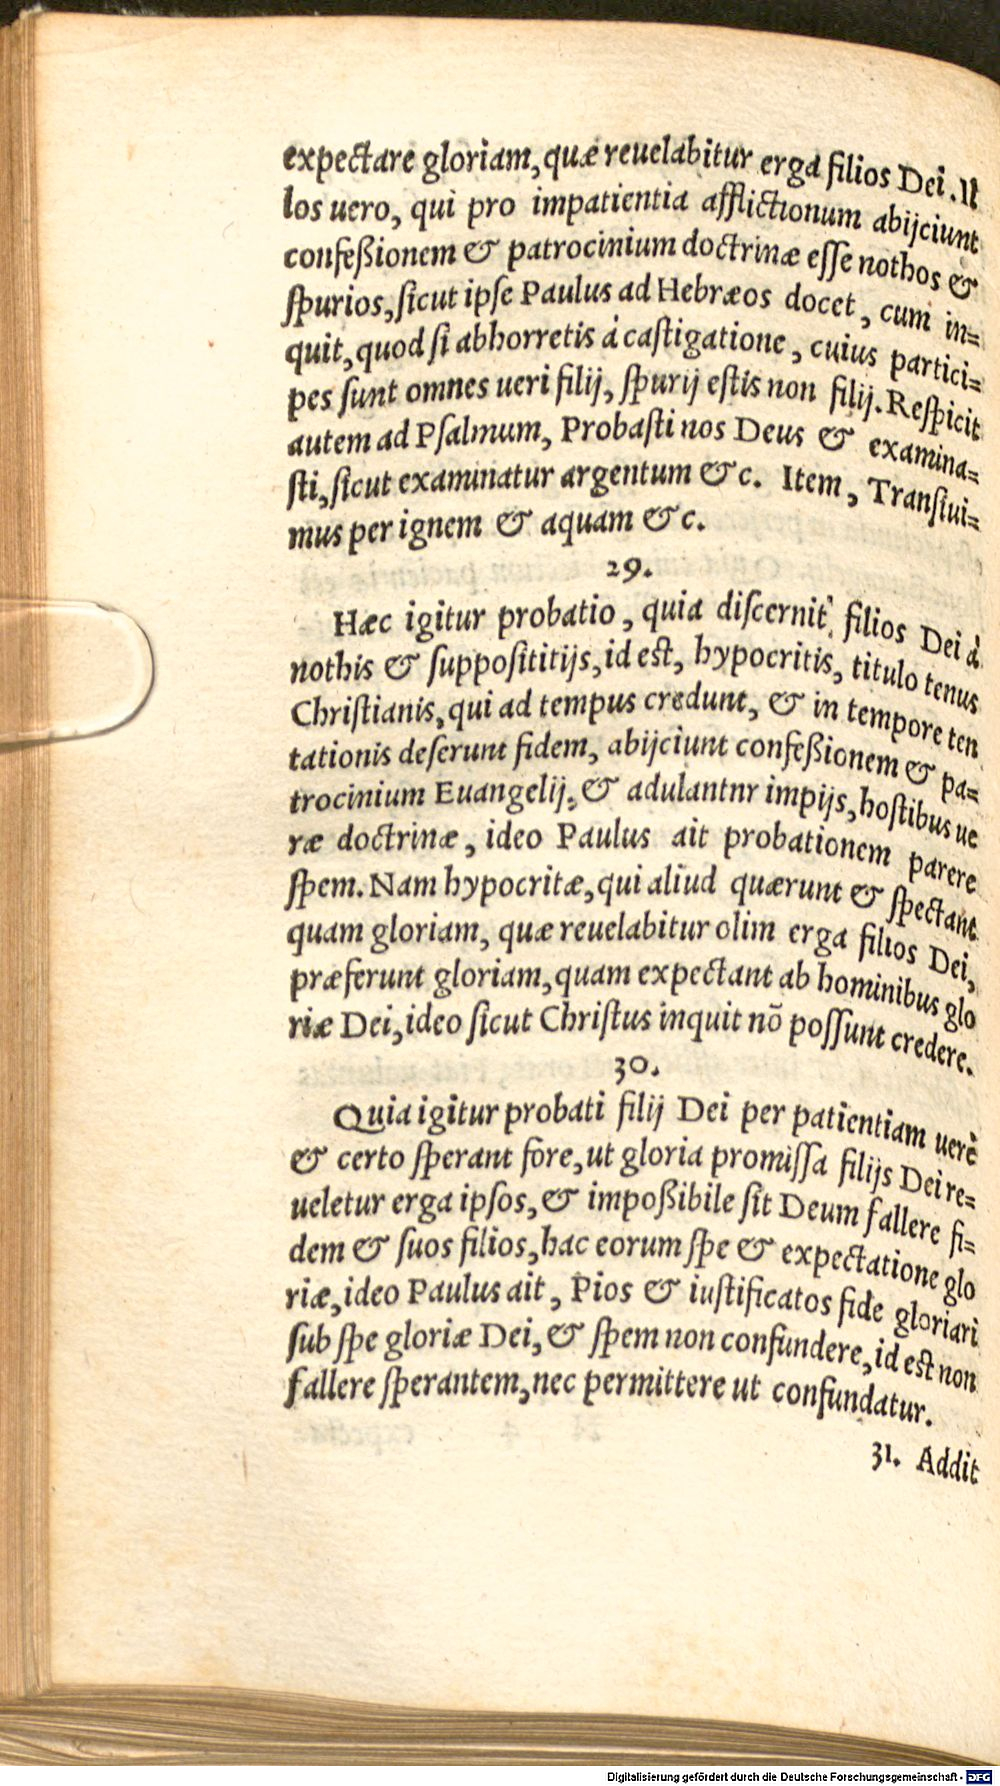 expectare gloriam, quæ reuelabitur erga filios Dei. Il
los uero, qui pro impatientia afflictionum abijciunt
confeßionem & patrocinium doctrinæ esse nothos &
spurios, sicut ipse Paulus ad Hebræos docet, cum in=
quit, quod si abhorretis à castigatione, cuius partici=
pes sunt omnes ueri filij, spurij estis non filij. Respicit
autem ad Psalmum, Probasti nos Deus & examina=
sti, sicut examinatur argentum &c. Item, Transiui=
mus per ignem & aquam &c.
29.
Hæc igitur probatio, quia discernit filios Dei à
nothis & supposititijs, id est, hypocritis, titulo tenus
Christianis, qui ad tempus credunt, & in tempore ten
tationis deserunt fidem, abijciunt confeßionem & pa=
trocinium Euangelij, & adulantnr impijs, hostibus ue
ræ doctrinæ, ideo Paulus ait probationem parere
spem. Nam hypocritæ, qui aliud quærunt & spectant
quam gloriam, quæ reuelabitur olim erga filios Dei,
præferunt gloriam, quam expectant ab hominibus glo
riæ Dei, ideo sicut Christus inquit nō possunt credere.
30.
Quia igitur probati filij Dei per patientiam uerè
& certo sperant fore, ut gloria promissa filijs Dei re=
ueletur erga ipsos, & impoßibile sit Deum fallere fi=
dem & suos filios, hac eorum spe & expectatione glo
riæ, ideo Paulus ait, Pios & iustificatos fide gloriari
sub spe gloriæ Dei, & spem non confundere, id est non
fallere sperantem, nec permittere ut confundatur.
31. Addit
Digitalisierung gefördert durch die Deutsche Forschungsgemeinschaft - DFG